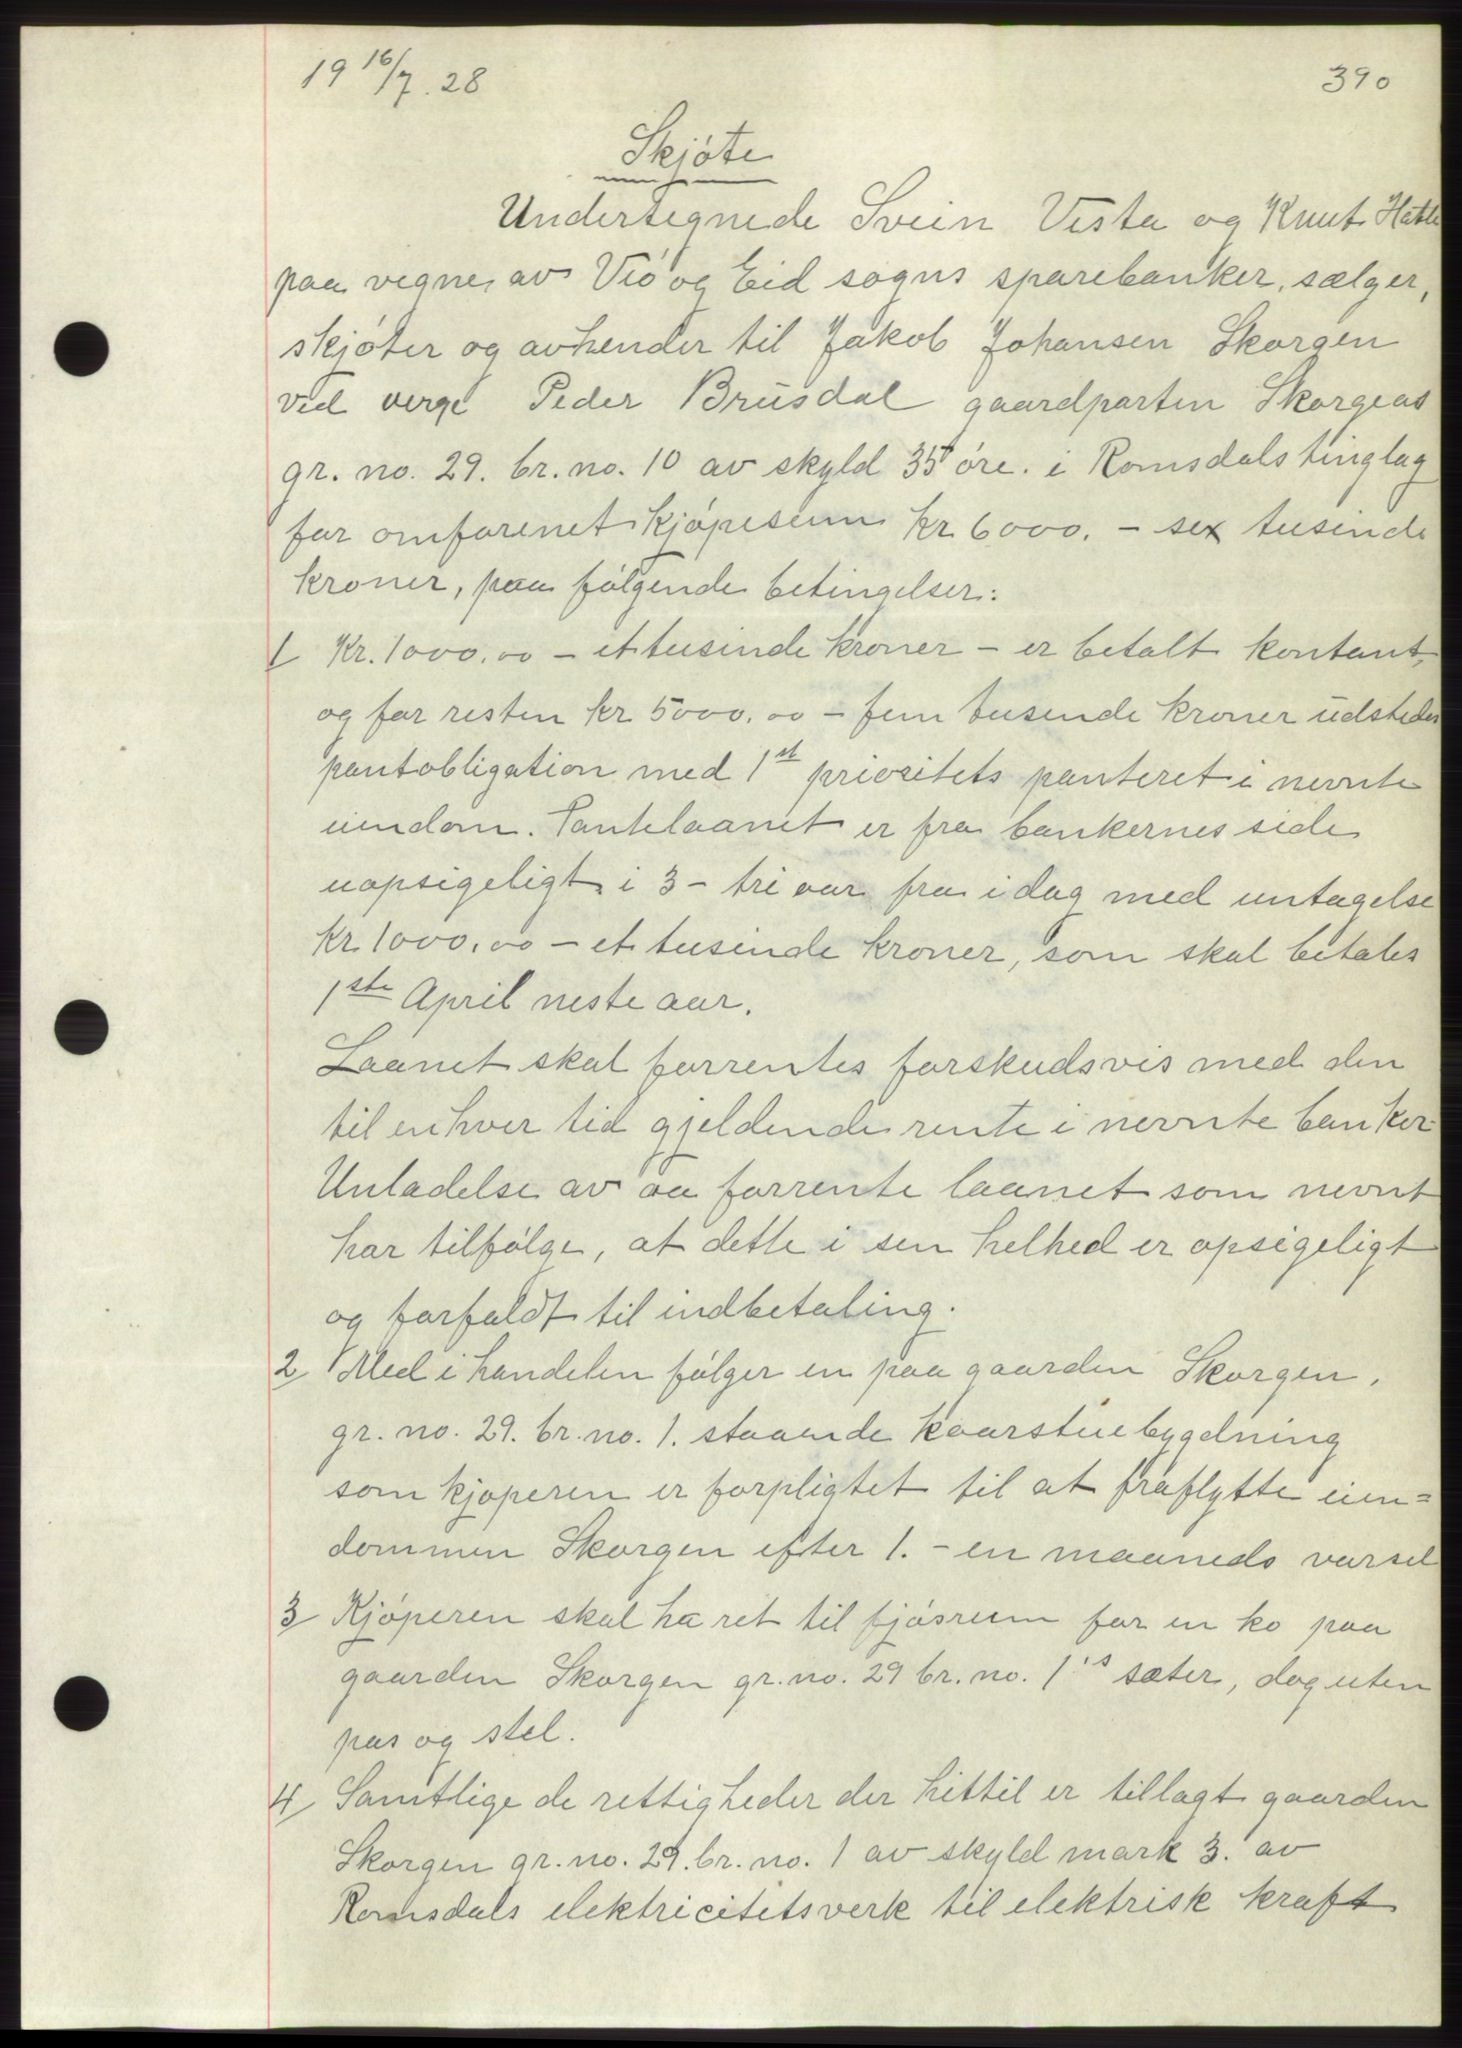 19 16/7. 28
390
Skjøte
Undertegnede Svein Vesta og Knut Hatle
paa vegne av Veø og Eid sogns sparebanker, sælger,
skjøter og avhender til Jakob Johansen Skorgen
ved verge Peder Brusdal gaardparten Skorgeas
gr. no. 29. br. no. 10 av skyld 35 øre. i Romsdals tinglag
for omforenet kjøpesum kr 6000. – sex tusinde
kroner, paa følgende betingelser:
1/ Kr. 1000.00 – et tusinde kroner – er betalt kontant,
og for resten kr 5000.00 – fem tusende kroner udstedes
pantobligation med 1st prioritets panteret i nevnte
eiendom. Pantelaanet er fra bankernes side
uopsigeligt i 3 – tri aar fra idag med untagelse
kr 1000.00 – et tusinde kroner, som skal betales
1ste April neste aar.
Laanet skal forrentes forskudsvis med den
til enhver tid gjeldende rente i nevnte banker.
Unladelse av aa forrente laanet som nevnt
har tilfølge, at dette i sen helhed er opsigeligt
og forfaldt til indbetaling.
2/ Med i handelen følger en paa gaarden Skorgen,
gr. no. 29. br. no. 1. staaende kaarstuebygdning
som kjøperen er forpligtet til at fraflytte eien=
dommen Skorgen efter 1. – en maaneds varsel
3/ Kjøperen skal ha ret til fjøsrum for en ko paa
gaarden Skorgen gr. no. 29 br. no. 1's sæter, dog uten
pas og stel.
4/ Samtlige de rettigheder der hittil er tillagt gaarden
Skorgen gr. no. 29. br. no. 1 av skyld mark 3. av
Romsdals elektricitetsverk til elektrisk kraft